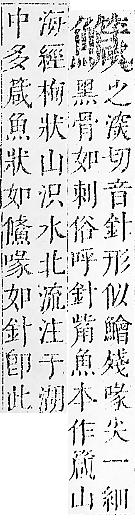 鱵
之深切音針形似鱠殘喙尖一細
黑骨如刺俗呼針觜魚本作箴山
海經栒狀山沢水北流注于湖
中多箴魚狀如鯈喙如針卽此